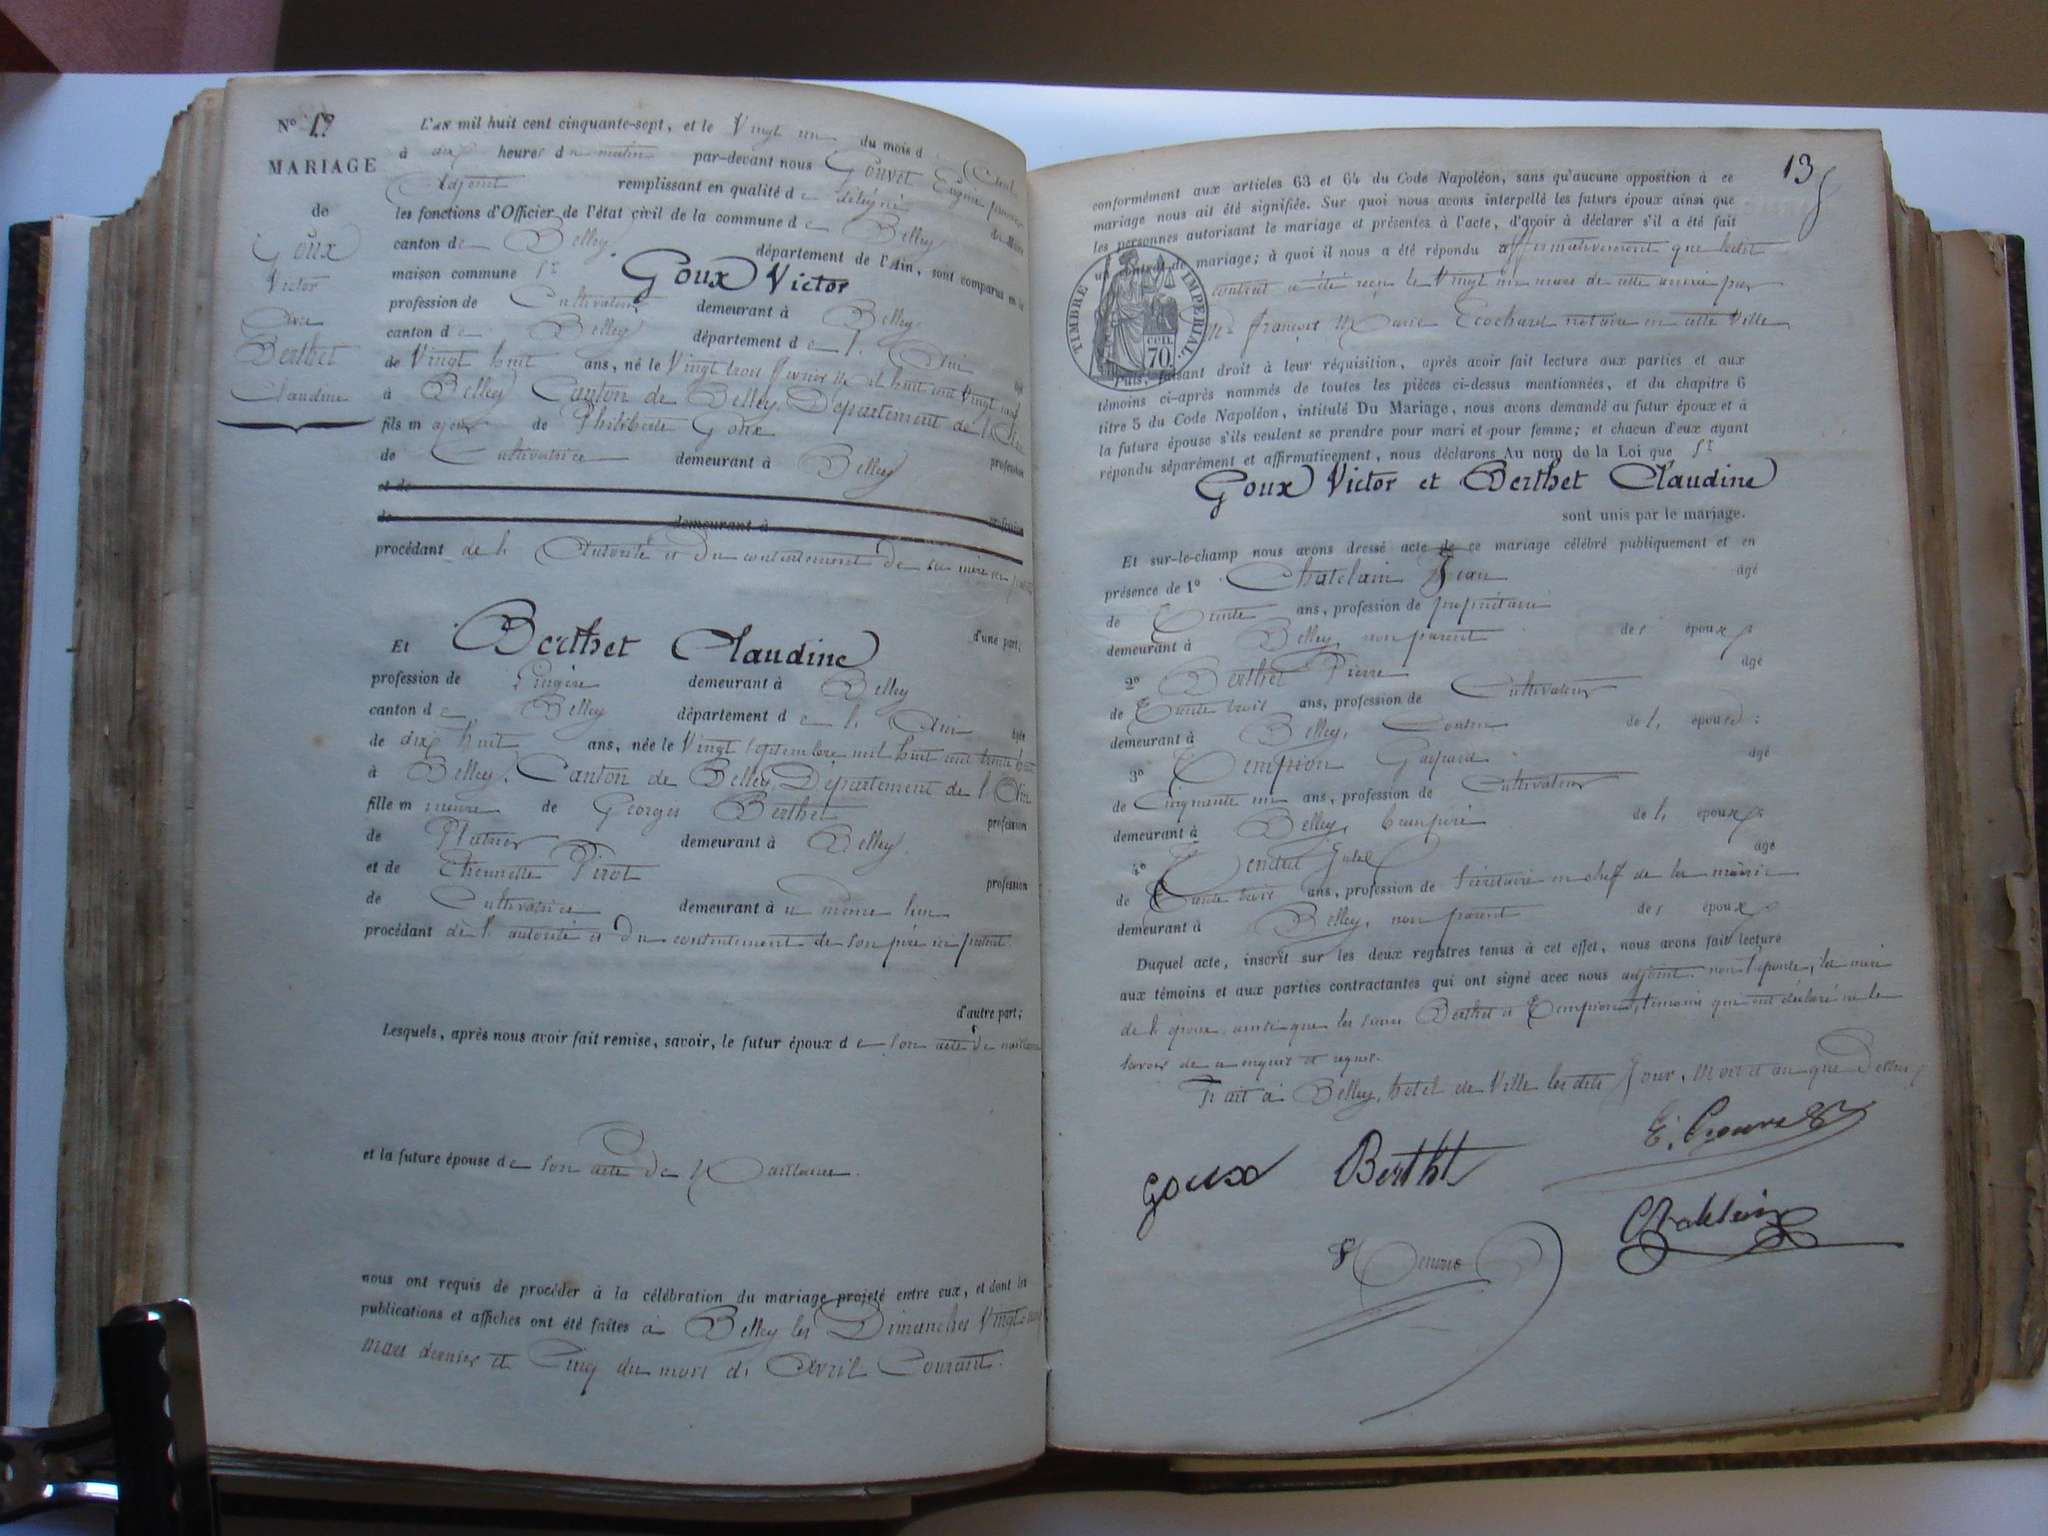 Nº 19
MARIAGE
de
Goux
Victor
avec
Berthet
Claudine
L'an mil huit cent cinquante-sept, et le Vingt un du mois d'Avril
à dix heures du matin par-devant nous Gouvet Eugène premier
Adjoint remplissant en qualité de délégué du Maire
les fonctions d'Officier de l'état civil de la commune de Belley
canton de Belley département de l'Ain, sont comparus en la
maison commune Sr Goux Victor
profession de Cultivateur demeurant à Belley
canton de Belley département de l'Ain âgé
de Vingt huit ans, né le Vingt trois février mil huit cent vingt neuf
à Belley Canton de Belley, Département de l'Ain
fils majeur de Philiberte Goux profession
de Cultivatrice demeurant à Belley
et de profession
de demeurant à
procédant de l'Autorité et du consentement de sa mère ici présente
d'une part;
Et Berthet Claudine
profession de Lingère demeurant à Belley
canton de Belley département de l'Ain âgée
de dix huit ans, née le Vingt septembre mil huit cent trente huit
à Belley, Canton de Belley, Département de l'Ain
fille mineure de Georges Berthet profession
de Platrier demeurant à Belley.
et de Etiennette Pirot profession
de Cultivatrice demeurant à u même lieu
procédant de l'autorité et du consentement de son père ici présent
d'autre part;
Lesquels, après nous avoir fait remise, savoir, le futur époux de son acte de naissance
et la future épouse de son acte de Naissance.
nous ont requis de procéder à la célébration du mariage projeté entre eux, et dont les
publications et affiches ont été faites à Belley les Dimanches Vingt-neuf
mars dernier et Cinq du mois d'Avril Courant.
13
conformément aux articles 63 et 64 du Code Napoléon, sans qu'aucune opposition à ce
mariage nous ait été signifiée. Sur quoi nous avons interpellé les futurs époux ainsi que
les personnes autorisant le mariage et présentes à l'acte, d'avoir à déclarer s'il a été fait
un contrat de mariage; à quoi il nous a été répondu affirmativement que ledit
contrat a été reçu le Vingt un mars de cette année par
Me François Marie Ecochard notaire en cette Ville
TIMBRE IMPÉRIAL
70 CEN.
Puis, faisant droit à leur réquisition, après avoir fait lecture aux parties et aux
témoins ci-après nommés de toutes les pièces ci-dessus mentionnées, et du chapitre 6
titre 5 du Code Napoléon, intitulé Du Mariage, nous avons demandé au futur époux et à
la future épouse s'ils veulent se prendre pour mari et pour femme; et chacun d'eux ayant
répondu séparément et affirmativement, nous déclarons Au nom de la Loi que Sr
Goux Victor et Berthet Claudine
sont unis par le mariage.
Et sur-le-champ nous avons dressé acte de ce mariage célébré publiquement et en
présence de 1º Chatelain Jean âgé
de Trente ans, profession de propriétaire
demeurant à Belley non parent des époux
2º Berthet Pierre âgé
de Trente trois ans, profession de Cultivateur
demeurant à Belley, Cousin de l'épouse;
3º Tempion Gaspard âgé
de Cinquante un ans, profession de Cultivateur
demeurant à Belley, beaupère de l'époux
4º Tendret Jules âgé
de Trente trois ans, profession de Secrétaire en chef de la mairie
demeurant à Belley, non parent des époux
Duquel acte, inscrit sur les deux registres tenus à cet effet, nous avons fait lecture
aux témoins et aux parties contractantes qui ont signé avec nous adjoint non l'épouse, la mère
de l'époux ainsi que les sieurs Berthet et Tempion, témoins qui ont déclaré ne le
savoir de ce enquis et requis.
Fait à Belley, hotel de Ville les dits Jour, mois et an que Dessus
goux Berthet E. Gouvet
Chatelain